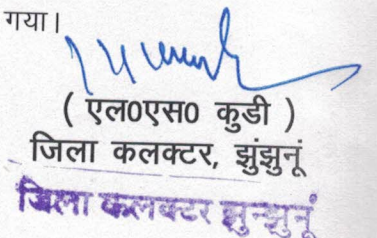 गया।
( एल0एस0 कुडी )
जिला कलक्टर, झुंझुनूं
जिला कलक्टर झुन्झुनूं